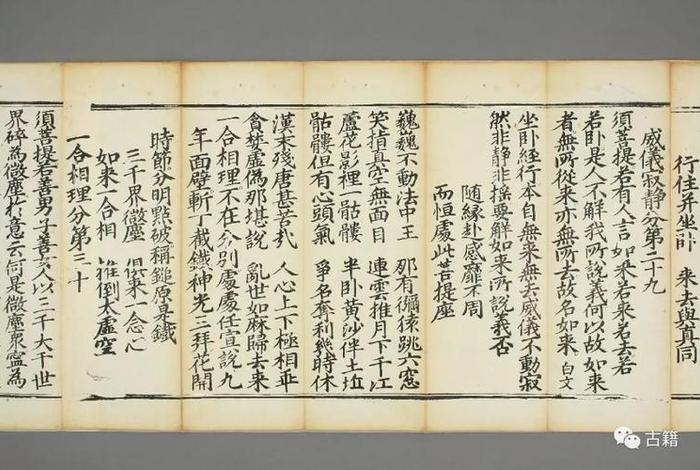 行住并坐計　來去與真同
威儀寂靜分第二十九
須菩提若有人言如來若來若去若
若卧是人不解我所說義何以故如來
者無所從來亦無所去故名如來 白文
坐卧經行本自無來無去威儀不動寂
然非静非搖要解如來所說義否
隨緣赴感靡不周
而恒處此菩提座
巍巍不動法中王　那有獼猴跳六窓
笑指真空無面目　連雲推月下千江
蘆花影裡一骷髏　半卧黃沙伴土坵
骷髏但有心頭氣　爭名奪利幾時休
漢末殘唐甚苦哉　人心上下極相乖
貪婪虛偽那堪說　亂世如麻歸去來
一合相理不在分別處處任宣說九
年面壁斬丁截鐵神光三拜花開
時節分明點破稱鎚原是鐵
三千界微塵　俱來一念心
如來一合相　推倒太虛空
一合相理分第三十
須菩提若善男子善女人以三千大千世
界碎為微塵於意云何是微塵衆寧為
古籍